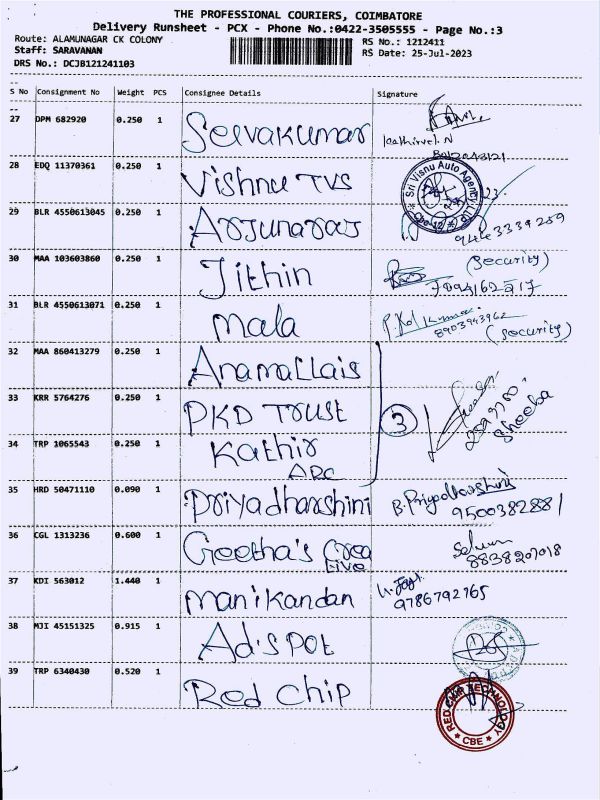 THE PROFESSIONAL COURIERS, COIMBATORE
Delivery Runsheet - PCX - Phone No.:0422-3505555 - Page No.:3
Route: ALAMUNAGAR CK COLONY
RS No.: 1212411
Staff: SARAVANAN
RS Date: 25-Jul-2023
DRS No.: DCJB121241103
S No Consignment No Weight PCS Consignee Details Signature
27 DPM 682920 0.250 1 Selvakumar
28 EDQ 11370361 0.250 1 Vishnu TVS
Sri Visnu Auto Agency
29 BLR 4550613045 0.250 1 Arjunaraj
9443339259
30 MAA 103603860 0.250 1 Jithin (Security)
7094162517
31 BLR 4550613071 0.250 1 Mala
8903943962
(Security)
32 MAA 860413279 0.250 1 Anamallais
33 KRR 5764276 0.250 1 PKD Trust 3
Sheeba
34 TRP 1065543 0.250 1 Kathir
ARC
35 HRD 50471110 0.090 1 Priyadharshini B. Priyadharshini
9500382881
36 CGL 1313236 0.600 1 Geetha's Crea
tive
Selvam
8838207018
37 KDI 563012 1.440 1 Manikandan
9786792765
38 MJI 45151325 0.915 1 Ad's Pot
39 TRP 6340430 0.520 1 Red Chip
RED CHIP TECHNOLOGY
CBE